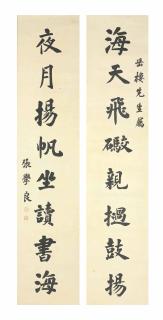 岳樓先生屬
海天飛礮親撾鼓揚
夜月揚帆坐讀書海
張學良